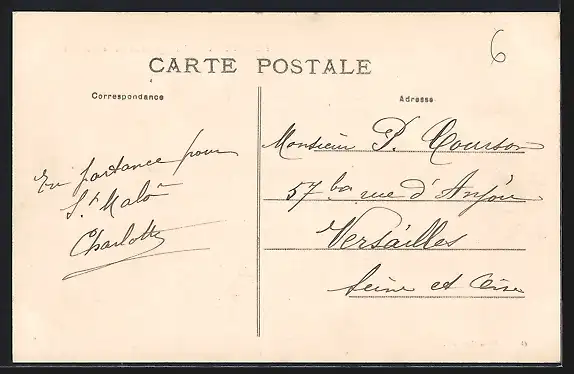 6
CARTE POSTALE
Correspondance
Adresse
En partance pour
St Malo
Charlotte
Monsieur P. Courson
57 bis rue d'Anjou
Versailles
Seine et Oise